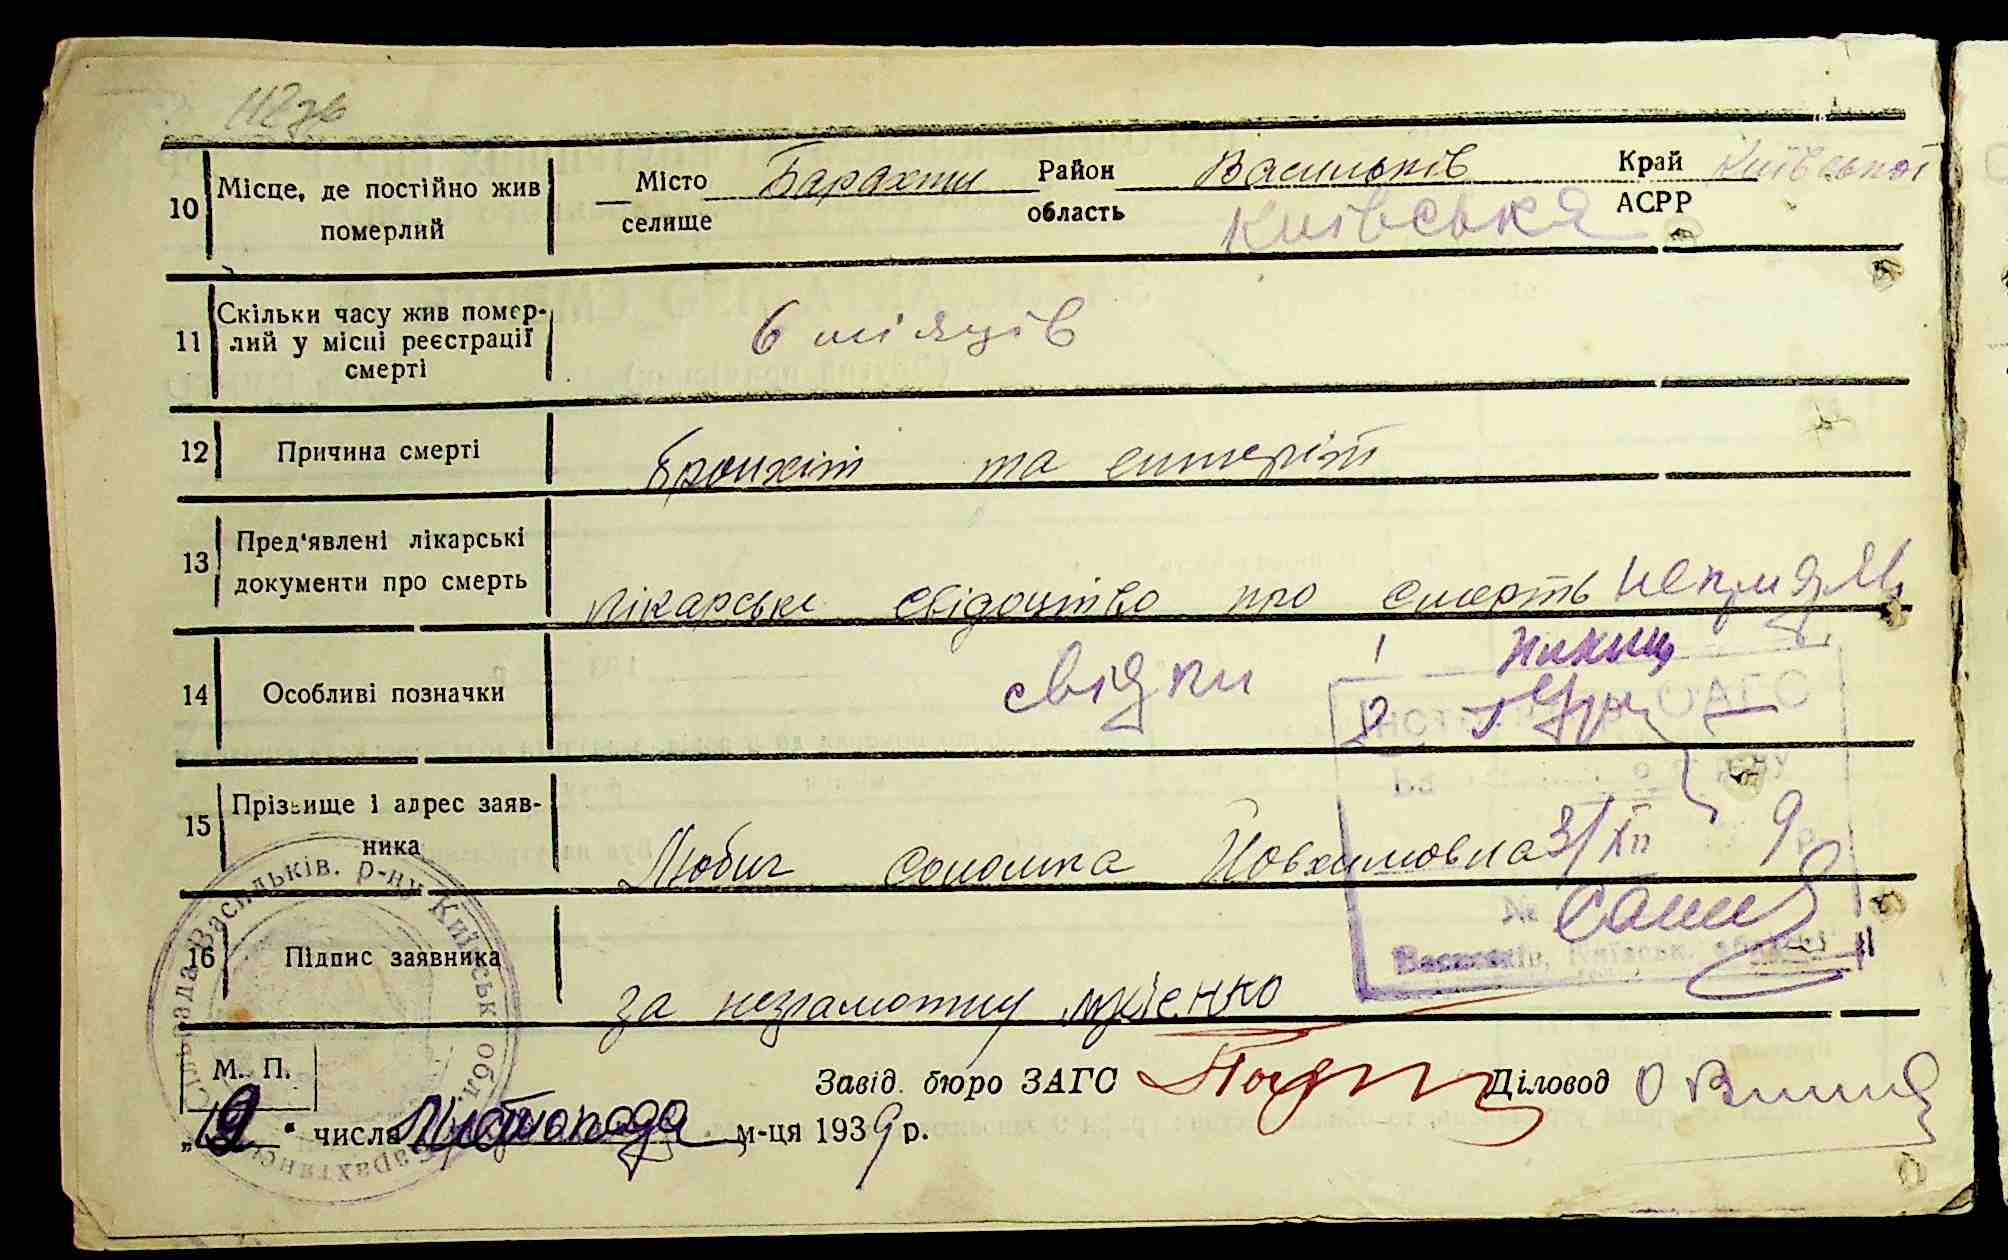 10 Місце, де постійно жив померлий
Місто Барахти Район Васильків Край Київської
селище область Київська АСРР
11 Скільки часу жив помер-
лий у місці реєстрації
смерті
6 місяців
12 Причина смерті
Бронхіт та ентеріт
13 Пред'явлені лікарські
документи про смерть
лікарське свідоцтво про смерть
14 Особливі позначки
свідки 1
2
15 Прізвище і адрес заяв-
ника
Любич Соломка Йовхимовна
31/XII 9
16 Підпис заявника
за незрамотну
М. П.
Завід. бюро ЗАГС
Діловод
„9" числа Листопада м-ця 1939 р.
Сільрада Васильків. р-ну Київськ. обл.
ЗАГС
№